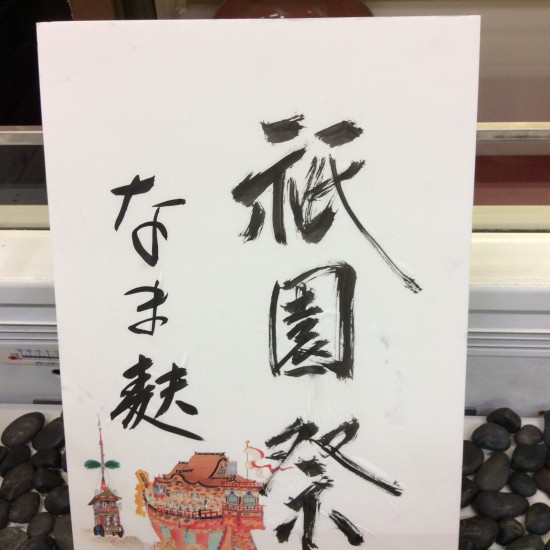 祇園祭
なま麩